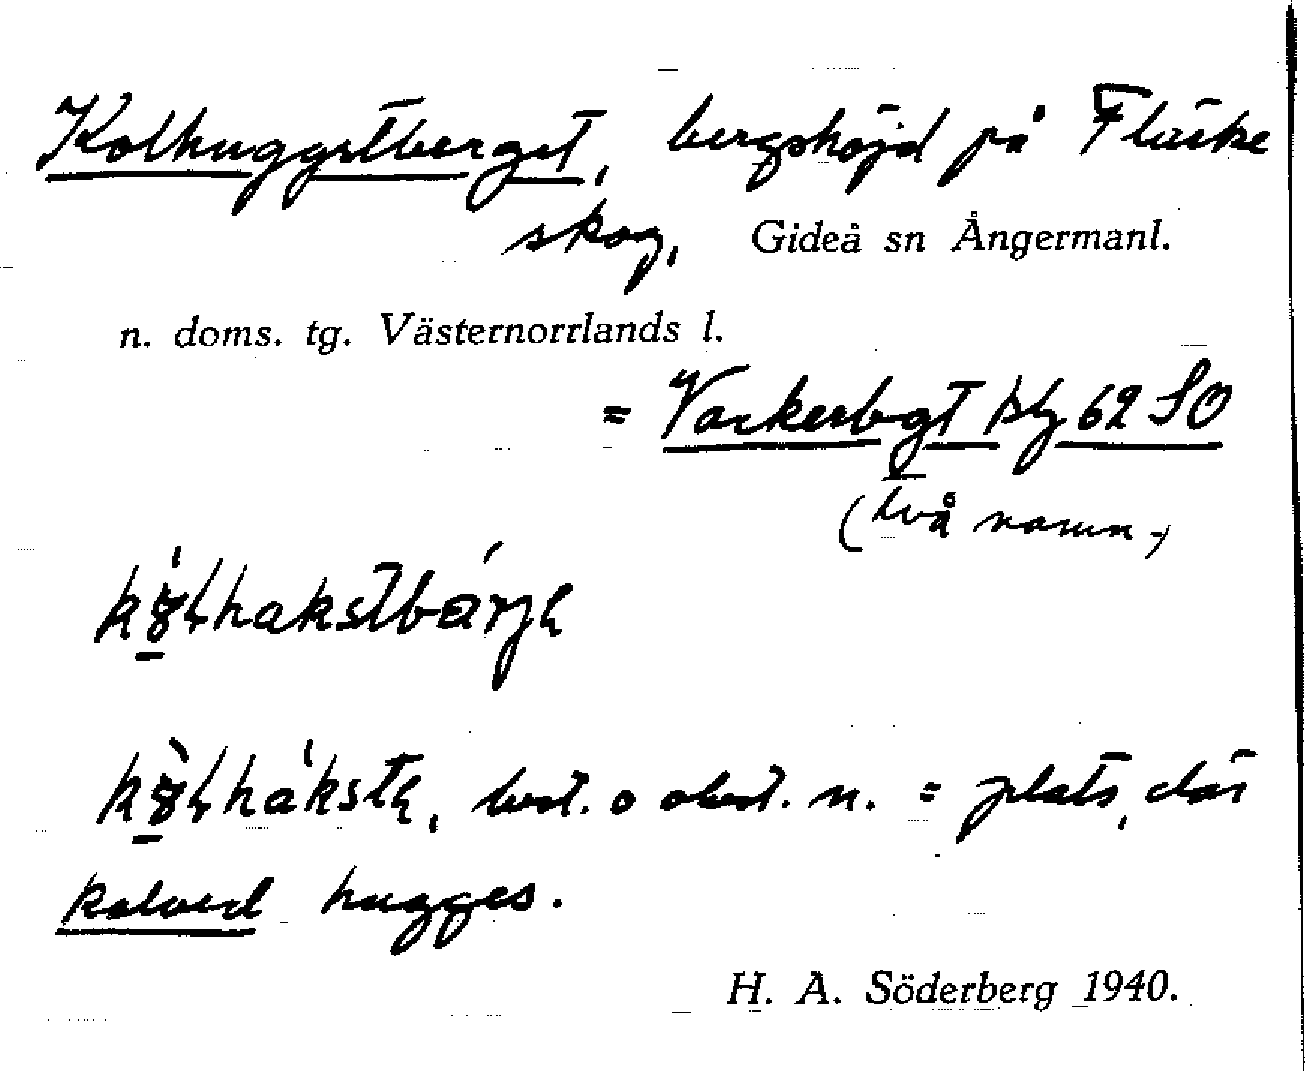 Kolhuggstberget, bergshöjd på Fläcke
skog, Gideå sn Ångermanl.
n. doms. tg. Västernorrlands l.
= Vackerbgt blg 62 SO
(två namn)
best. o obest. n. = plats, där
kolved hugges.
H. A. Söderberg 1940.